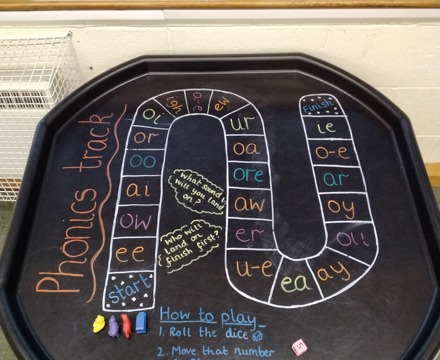 Phonics track
start
ee
ow
ai
oo
or
oi
igh
a-e
ew
ur
oa
ore
aw
er
u-e
ea
ay
ou
oy
ar
o-e
ie
Finish
What sound
will you land
on?
Who will
land on
finish first?
How to play
1. Roll the dice
2. Move that number